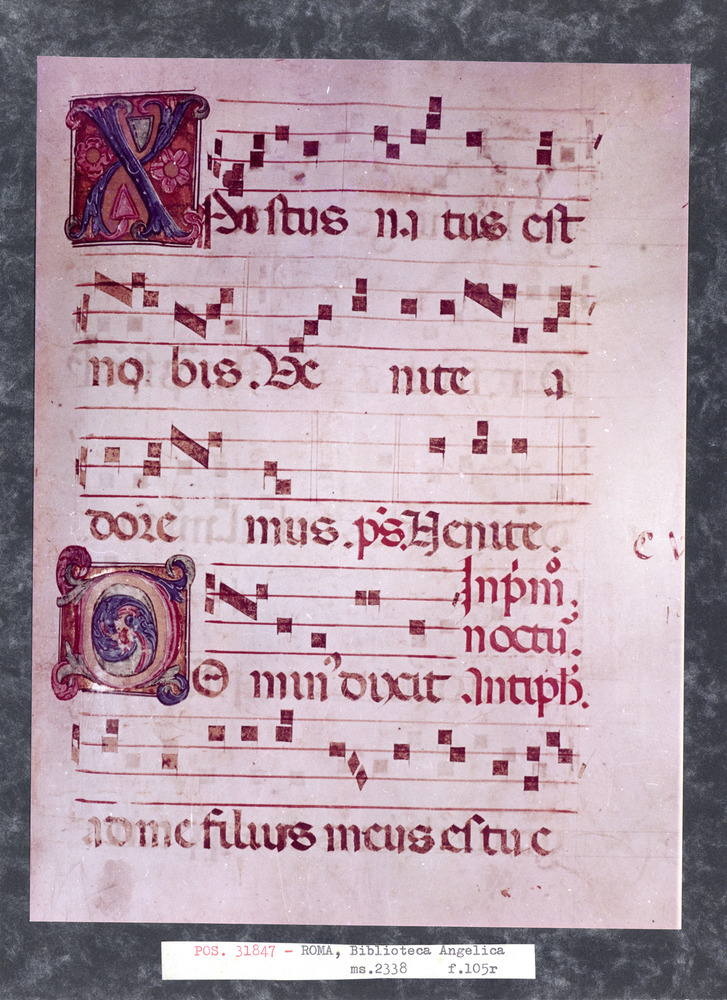 Xpistus na tus est
no bis. Ve nite a
dore mus. ps. Venite.
In prim̄.
noctū.
Domin' dixit Antiph.
ad me filius meus es tu e
POS. 31847 - ROMA, Biblioteca Angelica
ms.2338 f.105r